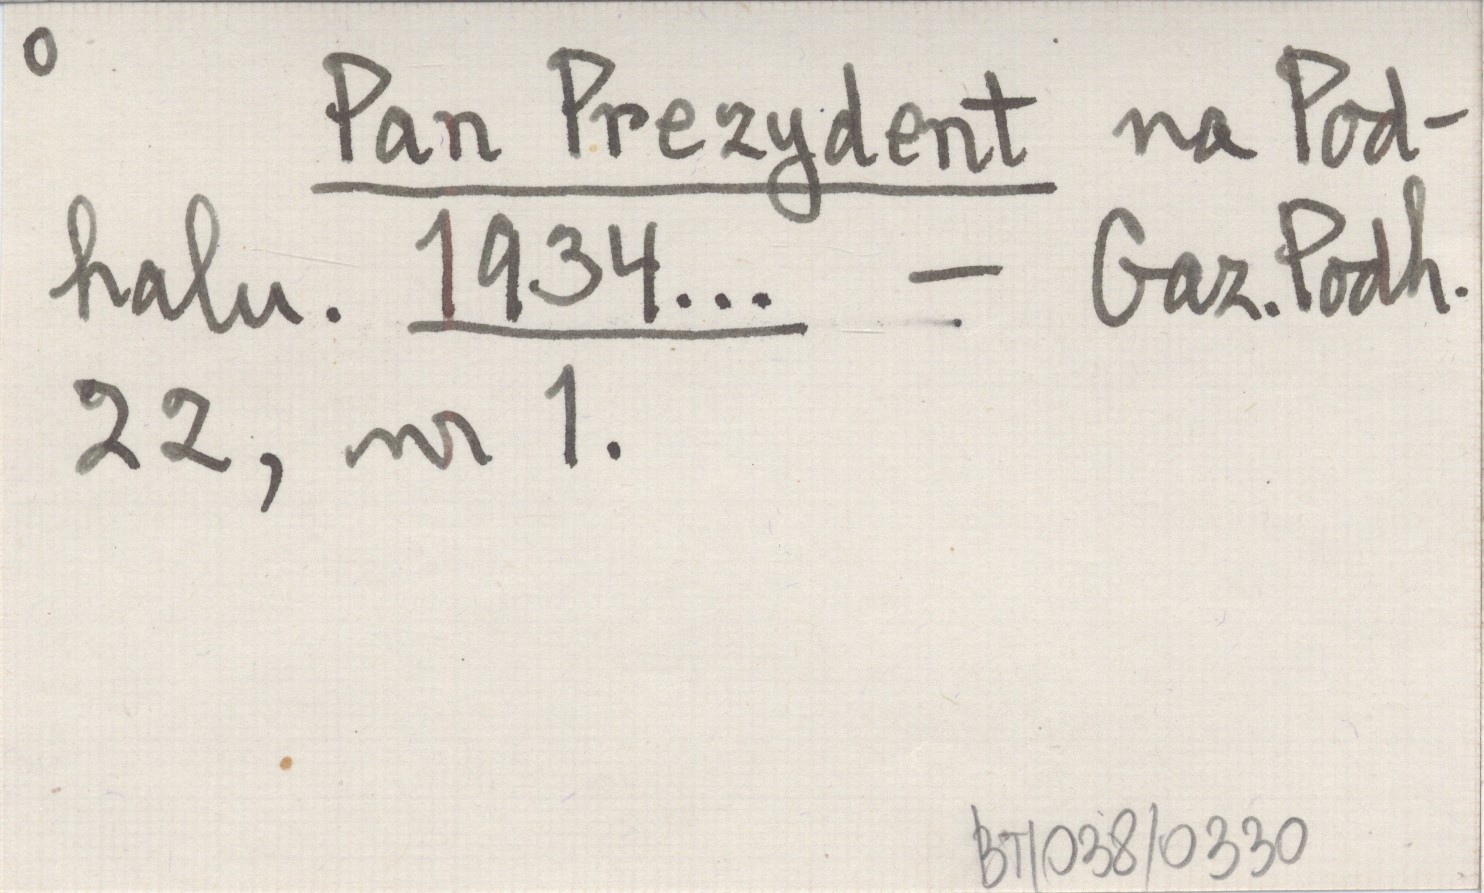 o
Pan Prezydent na Pod-
halu. 1934... - Gaz. Podh.
22, nr 1.
BT/038/0330